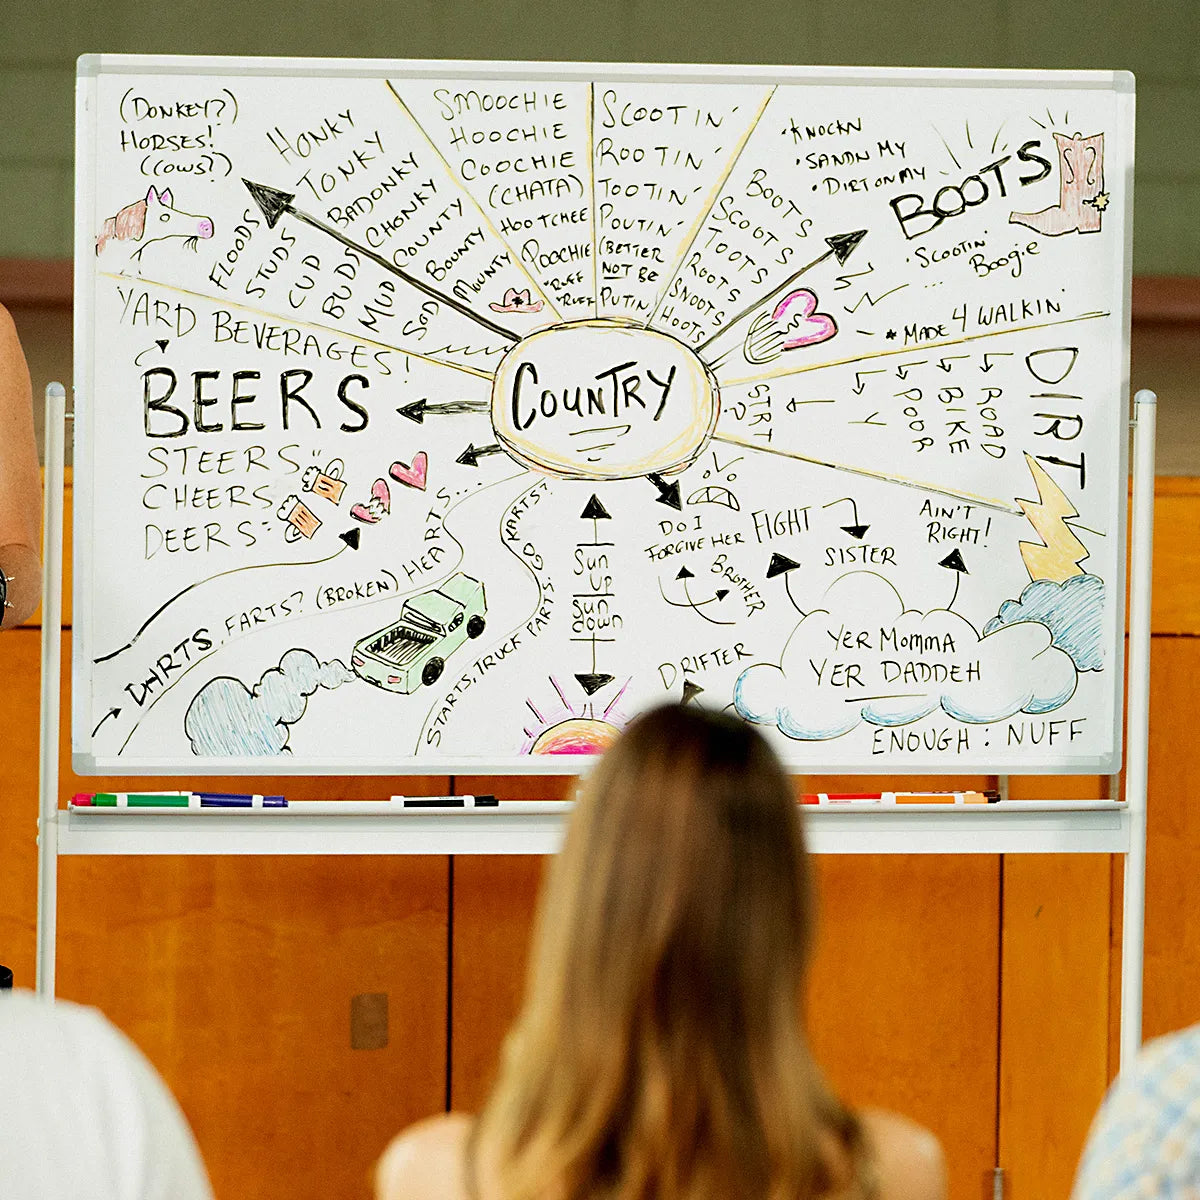 (DONKEY?)
HORSES!
(COWS?)
HONKY
TONKY
BADONKY
CHONKY
COUNTY
BOUNTY
MOUNTY
FLOODS
STUDS
CUD
BUDS
MUD
SOD
SMOOCHIE
HOOCHIE
COOCHIE
(CHATA)
HOOTCHEE
POOCHIE
"RUFF
"RUFF
SCOOTIN'
ROOTIN'
TOOTIN'
POUTIN'
(BETTER
NOT BE
PUTIN'
BOOTS
SCOOTS
TOOTS
ROOTS
SNOOTS
HOOTS
• KNOCKN
• SANDN MY
• DIRT ON MY
BOOTS
• SCOOTIN'
BOOGIE
* MADE 4 WALKIN'
DIRT
ROAD
BIKE
POOR
Y
STRT
?
COUNTRY
YARD BEVERAGES!
BEERS
STEERS
CHEERS
DEERS
DARTS, FARTS? (BROKEN) HEARTS...
STARTS, TRUCK PARTS, GO KARTS?
Sun
UP
Sun
down
DO I
FORGIVE HER
BROTHER
FIGHT
SISTER
AIN'T
RIGHT!
DRIFTER
YER MOMMA
YER DADDEH
ENOUGH : NUFF